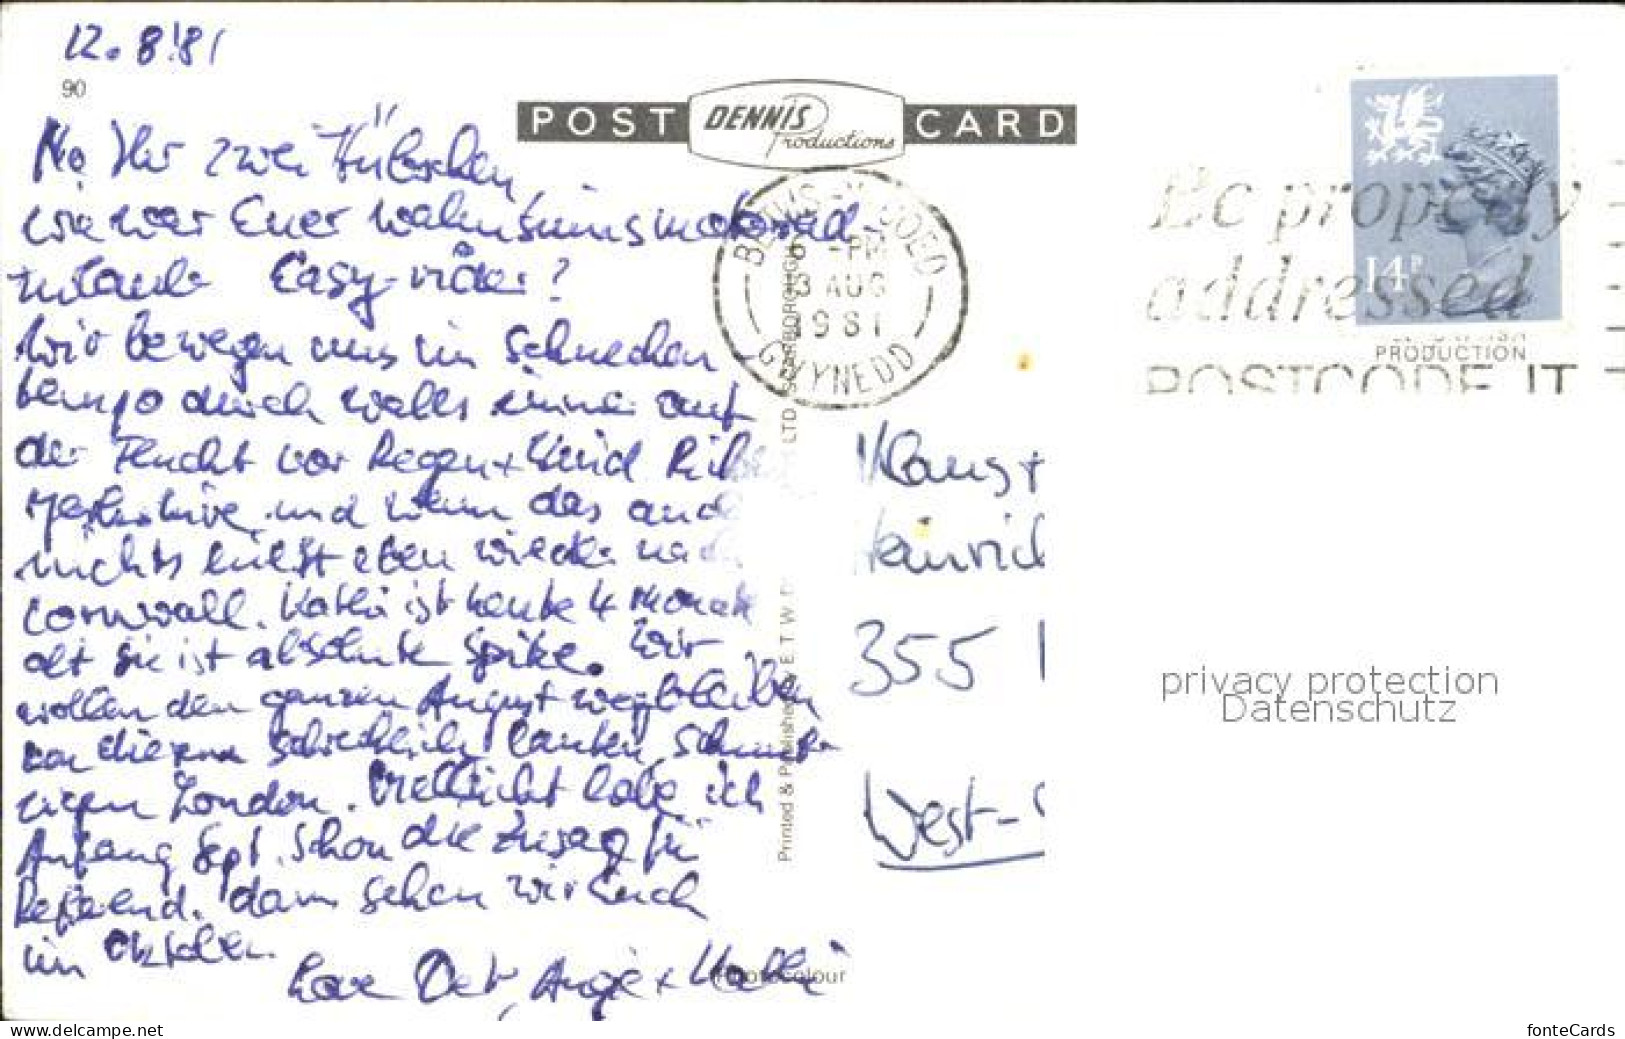 12.8.'81
90
POST DENNIS Productions CARD
Na Ihr zwei Hübschen,
wie war Euer wahnsinnsmotorrad-
urlaub Easy-rider?
Wir bewegen uns im Schnecken
tempo durch Wales immer auf
der Flucht vor Regen + Wind
und wenn das and
nichts hilft eben wieder nach
Cornwall. Kathi ist heute 4 Monate
alt sie ist absolute Spitze. Wir
wollen den ganzen August wegbleiben
von diesem schrecklich lauten, schmut-
zigen London. Vielleicht habe ich
Anfang Sept. schon die Zusage für
dann sehen wir Euch
im Oktober.
Love Det, Angie + Kathi
Photocolour
Printed & Published E.T.W. LTD SCARBOROUGH
BETWS-Y-COED
6 - PM
3 AUG
1981
GWYNEDD
Be properly
addressed
POSTCODE IT
14P
PRODUCTION
Klaus +
Heinrich
355
West-
privacy protection
Datenschutz
www.delcampe.net
fonteCards